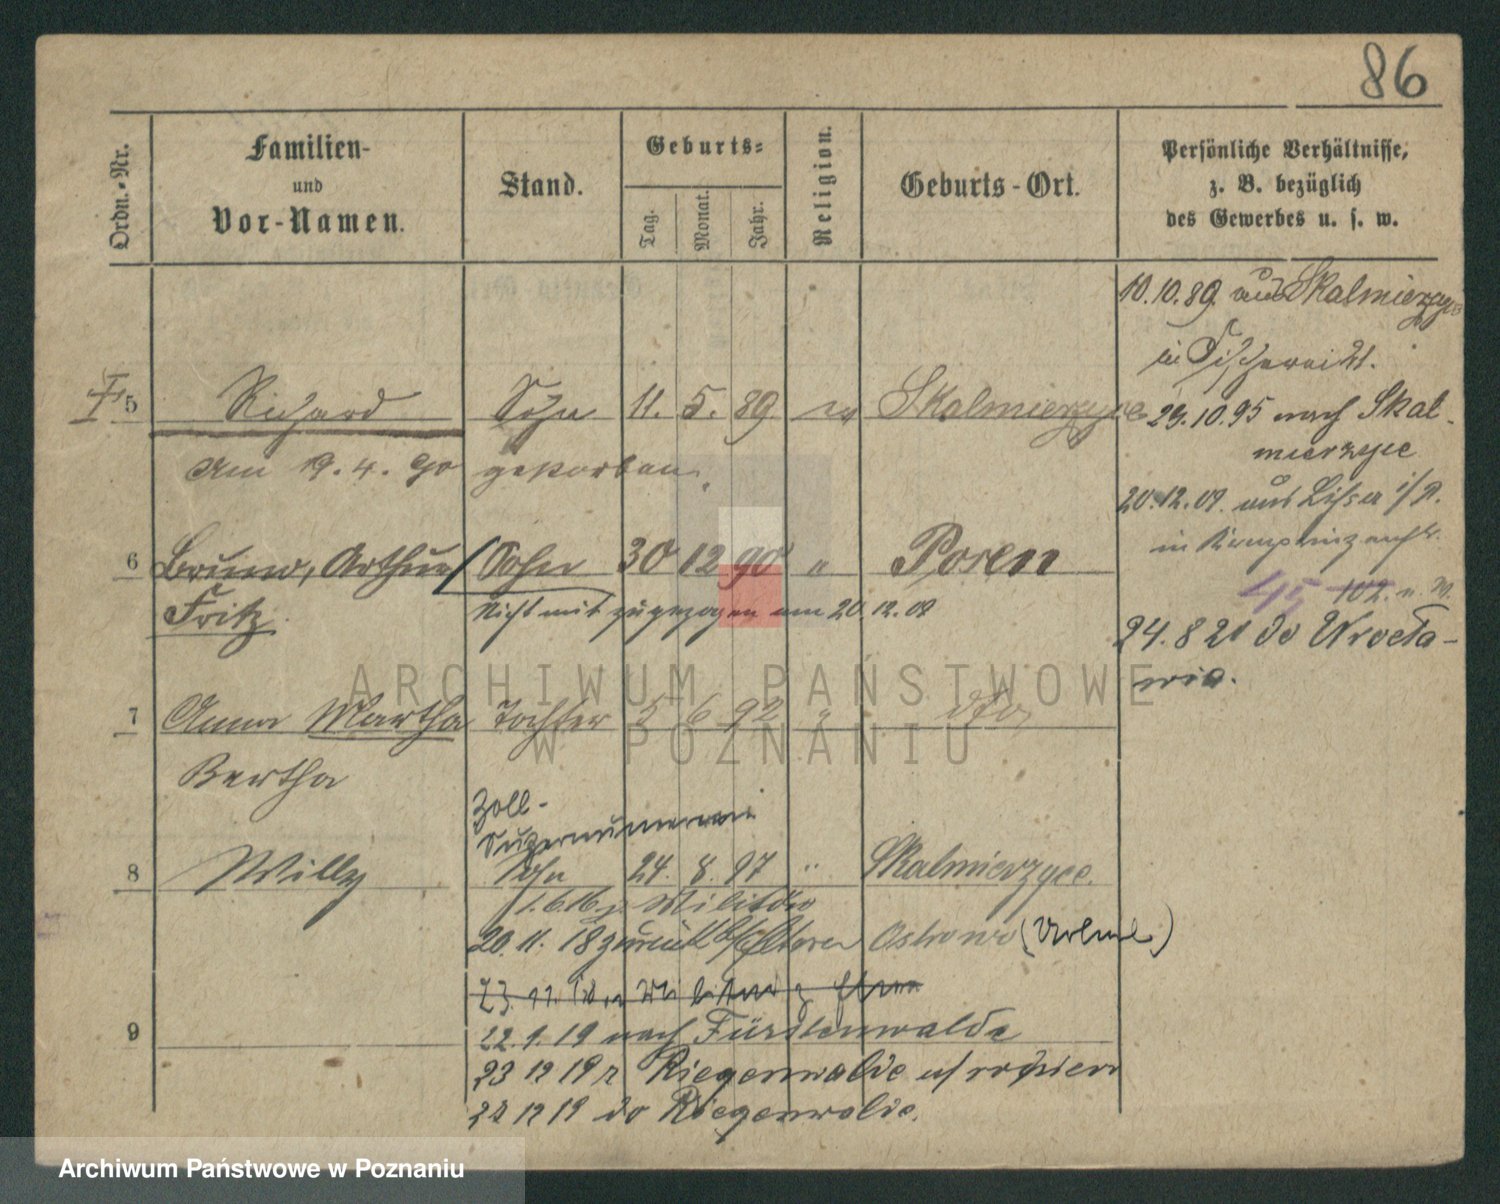 86
Ordn.-Nr.
Familien-
und
Vor-Namen.
Stand.
Geburts-
Tag.
Monat.
Jahr.
Religion.
Geburts-Ort.
Persönliche Verhältnisse,
z. B. bezüglich
des Gewerbes u. s. w.
10.10.89. aus Skalmierzyce
in
5 Richard Sohn 11. 5. 89 ev Skalmierzyce
am 19. 4. 90 gestorben.
29.10.95 nach Skal-
mierzyce
20.12.09. aus Lissa i/P.
in
6 Bruno, Arthur Sohn 30 12 90 " Posen
Fritz
Nicht mit zugezogen am 20.12.09
45 102. u. W.
24.8 20 do Wrocła-
wia.
7 Anna Martha Tochter 5 6 92 " dto,
Bertha
Zoll-
Supernumerar
8 Willy Sohn 24. 8. 97 " Skalmierzyce.
1.6.16 z. Militär
20. 11. 18 zurück v/Eltern Ostrowo (Urlaub)
9
22.1.19 nach Fürstenwalde
23 12 19 z Riegenwalde
22 12 19 do Riegenwalde.
ARCHIWUM PAŃSTWOWE
W POZNANIU
Archiwum Państwowe w Poznaniu